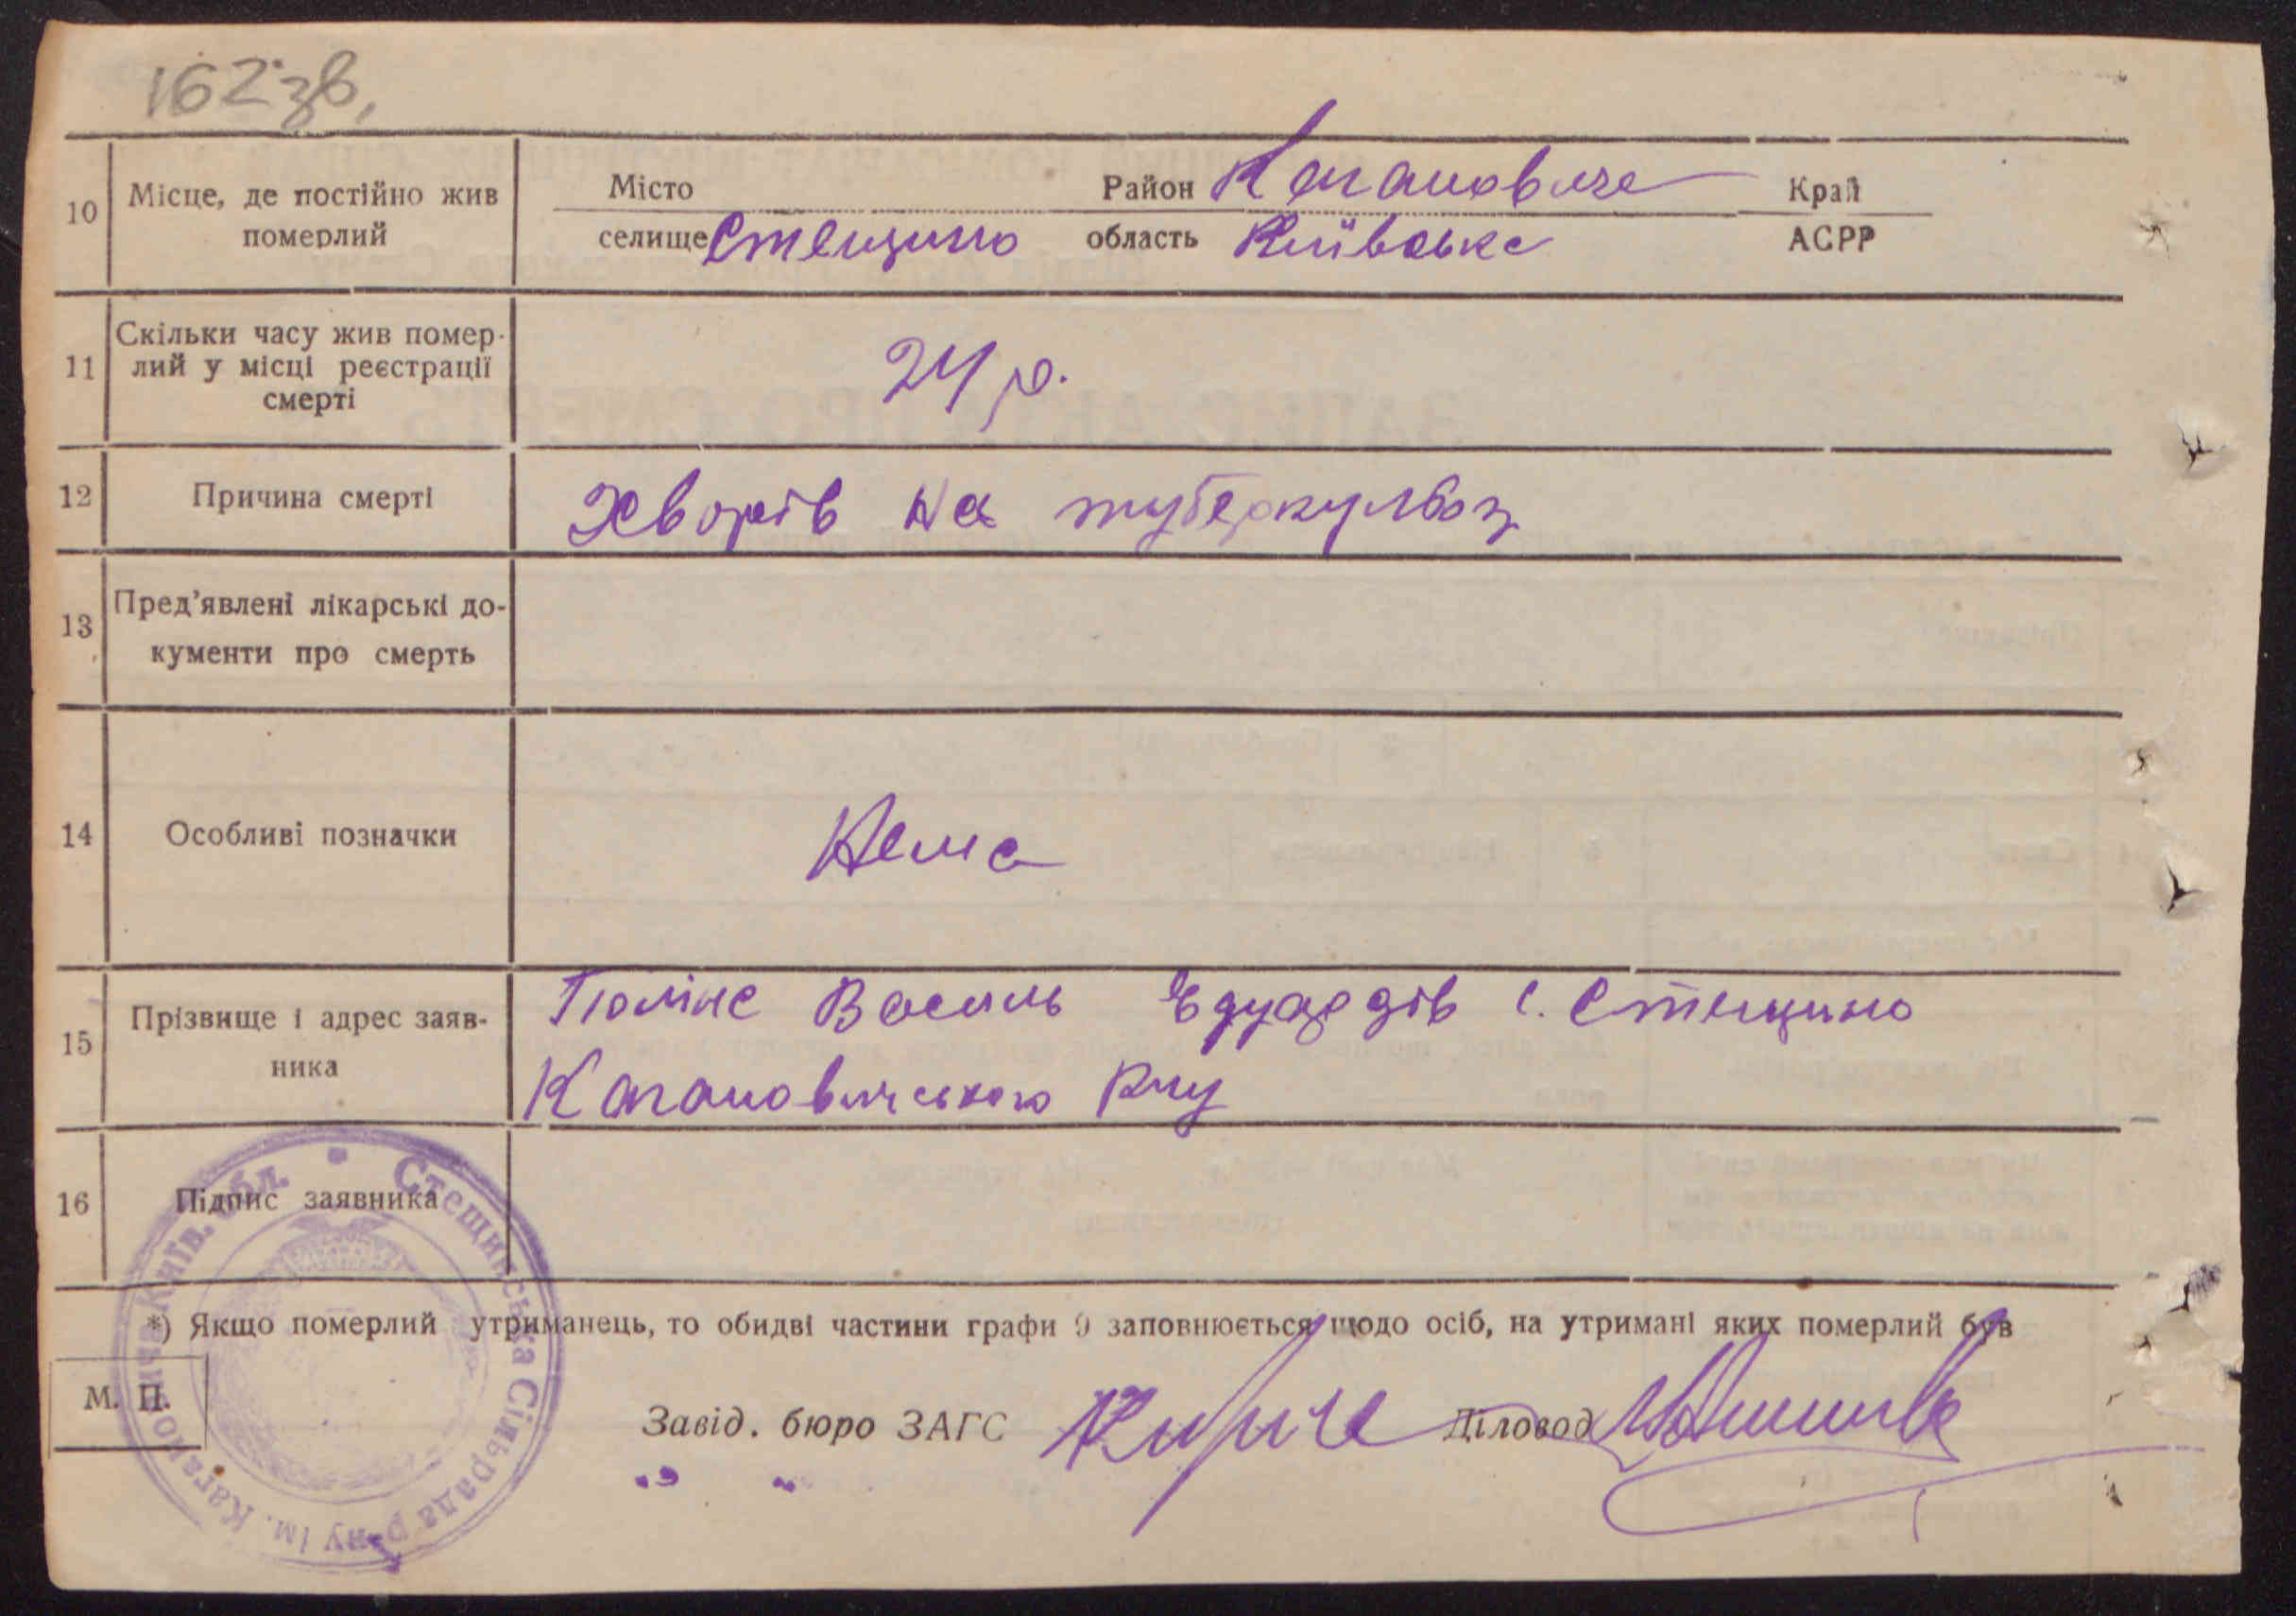 162 зв.
10 Місце, де постійно жив померлий
Місто Район Кагановича Край
селище Стещино область Київська АСРР
11 Скільки часу жив помер-
лий у місці реєстрації
смерті
24 р.
12 Причина смерті Хворів на туберкульоз
13 Пред'явлені лікарські до-
кументи про смерть
14 Особливі позначки Нема
15 Прізвище і адрес заяв-
ника
Василь Едуардів с. Стещино
Кагановичського
16 Підпис заявника
*) Якщо померлий утриманець, то обидві частини графи 9 заповнюється щодо осіб, на утримані яких померлий був
М. П.
Завід. бюро ЗАГС Діловод
Стещинська Сільрада р-ну ім. Кагановича Київ. обл.